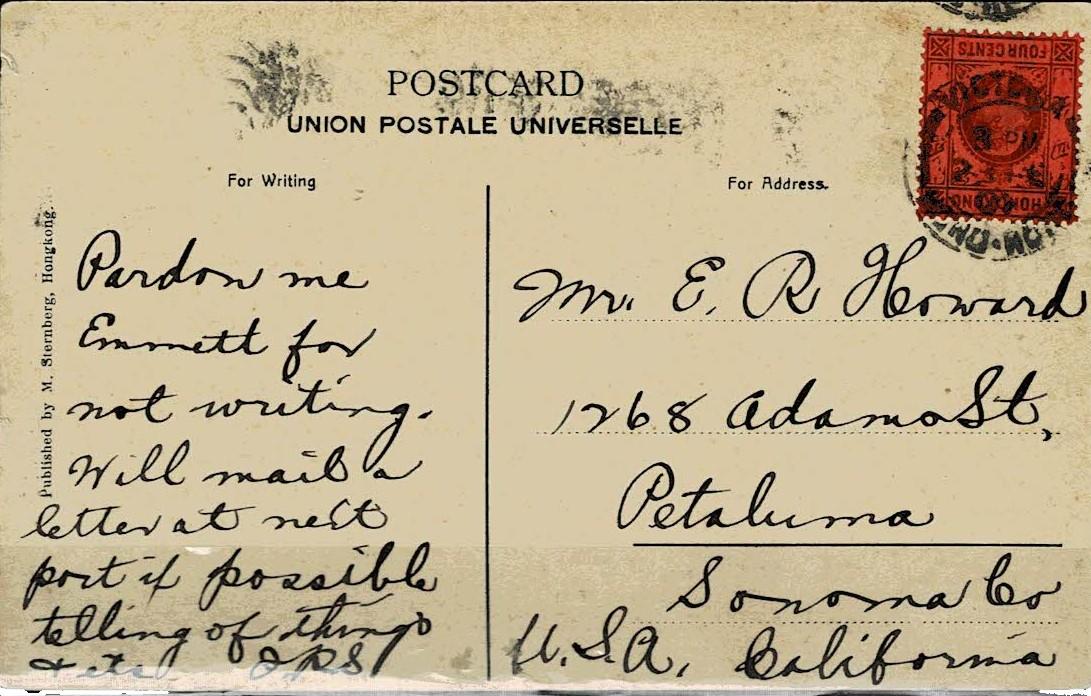 POSTCARD
UNION POSTALE UNIVERSELLE
For Writing
For Address.
FOUR CENTS
VICTORIA
3 PM
HONG-KONG
HONGKONG
Published by M. Sternberg, Hongkong.
Pardon me
Emmett for
not writing.
Will mail a
letter at next
port if possible
telling of things
Mr. E. R Howard
1268 Adams St,
Petaluma
Sonoma Co
U.S.A. California